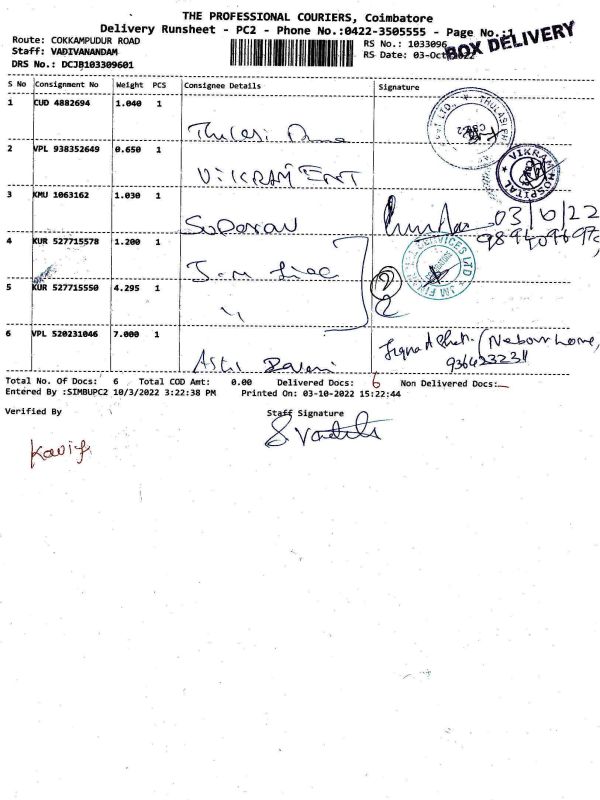 THE PROFESSIONAL COURIERS, Coimbatore
Delivery Runsheet - PC2 - Phone No.:0422-3505555 - Page No.:1
BOX DELIVERY
Route: COKKAMPUDUR ROAD
RS No.: 1033096
Staff: VADIVANANDAM
RS Date: 03-Oct-2022
DRS No.: DCJB103309601
S No Consignment No Weight PCS Consignee Details Signature
1 CUD 4882694 1.040 1
Thulasi
2 VPL 938352649 0.650 1
VIKRAM ENT
VIKRAM HOSPITAL
3 KMU 1063162 1.030 1
03/6/22
4 KUR 527715578 1.200 1
SERVICES LTD
5 KUR 527715550 4.295 1
2
6 VPL 520231046 7.000 1
Total No. Of Docs: 6 Total COD Amt: 0.00 Delivered Docs: 6 Non Delivered Docs:
Entered By :SIMBUPC2 10/3/2022 3:22:38 PM Printed On: 03-10-2022 15:22:44
Verified By
Staff Signature